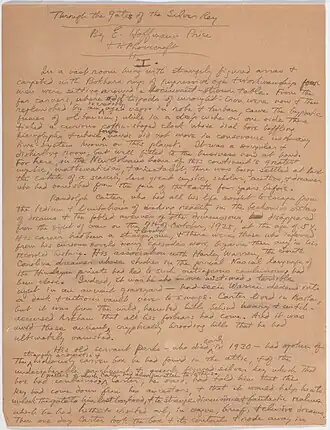 Through the Gates of the Silver Key
By E. Hoffmann Price
& H P Lovecraft
I.
In a vast room hung with strangely figured arras &
carpeted with Bokhara rugs of impressive age & workmanship four
men were sitting around a document-strown table. From the
far corners, where odd tripods of wrought-iron were now & then
replenished by an incredibly aged negro in livery, came the hypnotic
fumes of olibanum; while in a deep niche on one side there
ticked a curious coffin-shaped clock whose dial bore baffling
hieroglyphs & whose four hands did not move in consonance with any
time system known on this planet. It was a
disturbing room, but well fitted to the business now at hand.
For here, in the New Orleans home of this continent's greatest
mystic, mathematician, & orientalist, there was being settled at last
the estate of a scarcely less great mystic, scholar, author, & dreamer
who had vanished from the face of the earth four years before.
Randolph Carter, who had all his life sought to escape from
the tedium & limitations of waking reality in the
of dreams & the fabled avenues of other dimensions, disappeared
from the sight of man on the 7th of October, 1928, at the age of 54.
His career had been a strange & lonely one, & there were those who inferred
from his curious novels many episodes more bizarre than any in his
recorded history. His association with Harley Warren, the South
Carolina mystic whose studies in the primal Naacal language of
the Himalayan priests had led to such outrageous conclusions, had
been close. Indeed, it was he who
night in an ancient graveyard — had seen Warren descend into
a dank & nitrous vault, never to emerge. Carter lived in Boston,
but it was from the wild, haunted hills behind
Arkham that all his forbears had come. And it was
amid those ancient, cryptically brooding hills that he had
ultimately vanished.
His old servant Parks — who died early in 1930 — had spoken of
the strangely aromatic & hideously carven box he had found in the attic, & of the
undecipherable parchment & queerly figured silver key which that
box had contained; Carter, he said, had told him that the
key had come down from his ancestors, & that it would help him to
unlock the gate to his lost boyhood, & to strange dimensions & fantastic realms
which he had hitherto visited only in vague, brief, & elusive dreams.
Then one day Carter took the box & its contents & rode away in